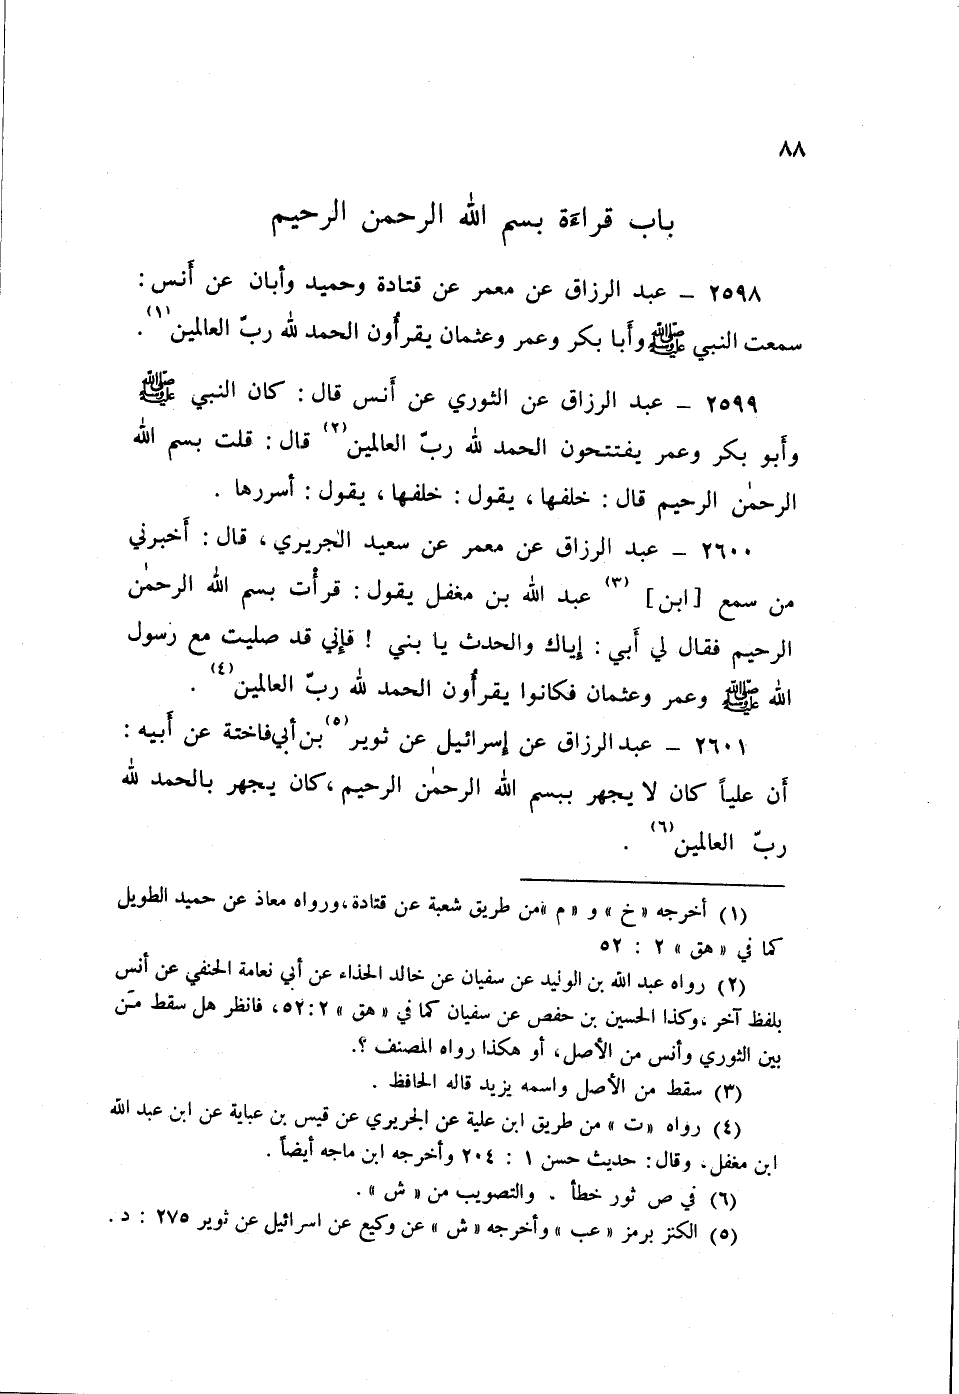 ٨٨
باب قراءة بسم الله الرحمن الرحيم
٢٥٩٨ – عبد الرزاق عن معمر عن قتادة وحميد وأبان عن أنس :
سمعت النبي ﷺ وأبا بكر وعمر وعثمان يقرأون الحمد لله ربّ العالمين(١).
٢٥٩٩ – عبد الرزاق عن الثوري عن أنس قال : كان النبي ﷺ
وأبو بكر وعمر يفتتحون الحمد لله ربّ العالمين(٢) قال : قلت بسم الله
الرحمٰن الرحيم قال : خلفها ، يقول : خلفها ، يقول : أسررها .
٢٦٠٠ – عبد الرزاق عن معمر عن سعيد الجريري ، قال : أخبرني
من سمع [ابن] (٣) عبد الله بن مغفل يقول : قرأت بسم الله الرحمٰن
الرحيم فقال لي أبي : إياك والحدث يا بني ! فإني قد صليت مع رسول
الله ﷺ وعمر وعثمان فكانوا يقرأون الحمد لله ربّ العالمين(٤) .
٢٦٠١ – عبد الرزاق عن إسرائيل عن ثوير(٥) بن أبي فاختة عن أبيه :
أن علياً كان لا يجهر ببسم الله الرحمٰن الرحيم ، كان يجهر بالحمد لله
ربّ العالمين(٦) .
(١) أخرجه « خ » و « م » من طريق شعبة عن قتادة ، ورواه معاذ عن حميد الطويل
كما في « هق » ٢ : ٥٢
(٢) رواه عبد الله بن الوليد عن سفيان عن خالد الحذاء عن أبي نعامة الحنفي عن أنس
بلفظ آخر ، وكذا الحسين بن حفص عن سفيان كما في « هق » ٢ : ٥٢ ، فانظر هل سقط مَن
بين الثوري وأنس من الأصل ، أو هكذا رواه المصنف ؟.
(٣) سقط من الأصل واسمه يزيد قاله الحافظ .
(٤) رواه « ت » من طريق ابن علية عن الجريري عن قيس بن عباية عن ابن عبد الله
ابن مغفل ، وقال : حديث حسن ١ : ٢٠٤ وأخرجه ابن ماجه أيضاً .
(٦) في ص ثور خطأ . والتصويب من « ش » .
(٥) الكنز برمز « عب » وأخرجه « ش » عن وكيع عن اسرائيل عن ثوير ٢٧٥ : د .